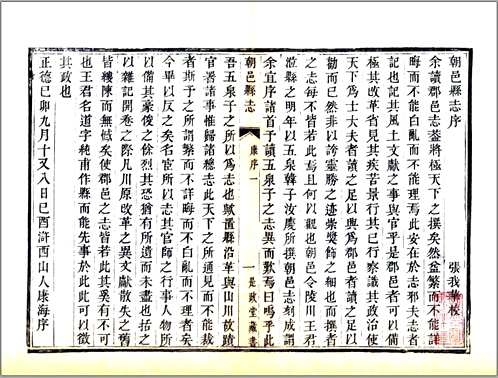 朝邑縣志序
張我華校
余讀郡邑志蓋將極天下之撰矣然益繁而不能詳
晦而不能白亂而不能理焉此安在於志邪夫志者
記也記其風土文獻之事與官乎是郡邑者可以備
極其改革省見其疾苦景行其已行察識其政治使
天下為士大夫者讀之足以興為郡邑者讀之足以
勸而已然非以誇靈勝之迹崇獎飾之細也而撰者
之志每不皆若此焉且何以觀也朝邑令陵川王君
蒞縣之明年以五泉韓子汝慶所撰朝邑志刻成謂
余宜序諸首予讀五泉子之志異而歎焉曰嗚乎此
朝邑縣志
康序
一
一
是政堂藏書
吾五泉子之所以為志也歟置縣沿革與山川故蹟
官署諸事惟歸諸總志此天下之所通見而不能裁
者斯予之所謂繁而不詳晦而不白亂而不理者矣
今畢以反之矣名宦所以志其官師之行事人物所
以備其豪俊之餘烈其恐猶有所遺而未盡也括之
以雜記開卷之際凡川原改革之異文獻散失之舊
皆縷陳而無憾矣使郡邑之志皆若此其奚有不可
也王君名道字純甫作縣而能先事於此此可以徵
其政也
正德己卯九月十又八日己酉滸西山人康海序